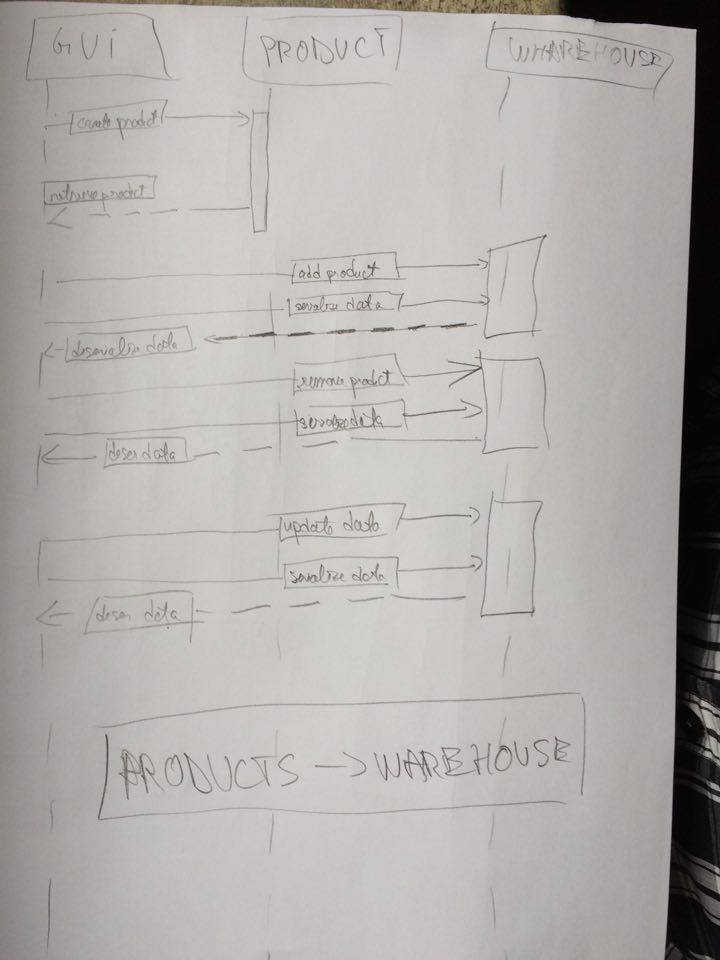 GUi
PRODUCT
WHAREHOUSE
create product
retrieve product
add product
serialize data
deserialize data
remove product
serialize data
deser data
update data
serialize data
deser data
PRODUCTS → WAREHOUSE